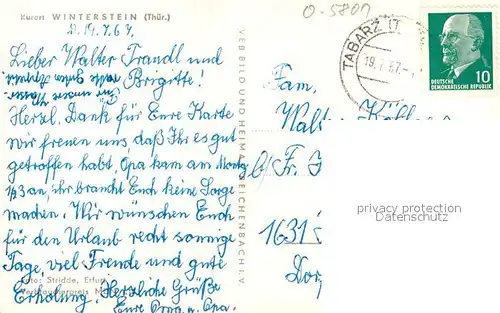 Kurort WINTERSTEIN (Thür.)
O-5801
D. 19.7.67.
Lieber Walter Traudl und
Brigitte!
Herzl. Dank für Eure Karte
wir freuen uns, daß Ihr es gut
getroffen habt. Opa kam am
an, ihr braucht Euch keine Sorge
machen. Wir wünschen Euch
für den Urlaub recht sonnige
Tage, viel Freude und gute
Erholung. Herzliche Grüße
Eure Oma u. Opa.
Foto: Stridde, Erfurt
VEB BILD UND HEIMAT REICHENBACH I. V.
TABARZ (T
19.7.67.-
DEUTSCHE
DEMOKRATISCHE REPUBLIK
10
Fam.
Walter
b/Fr.
1631
Dor
privacy protection
Datenschutz